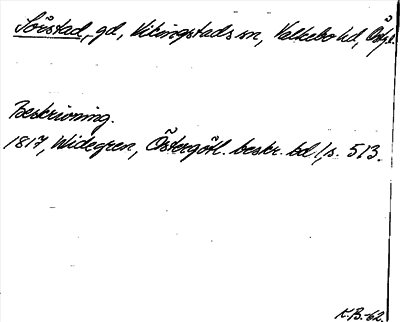 Sörstad, gd, Vikingstads sn, Valkebo hd, Östgl.
Beskrivning.
1817, Widegren, Östergötl. beskr. bd 1, s. 513.
K.B-62.